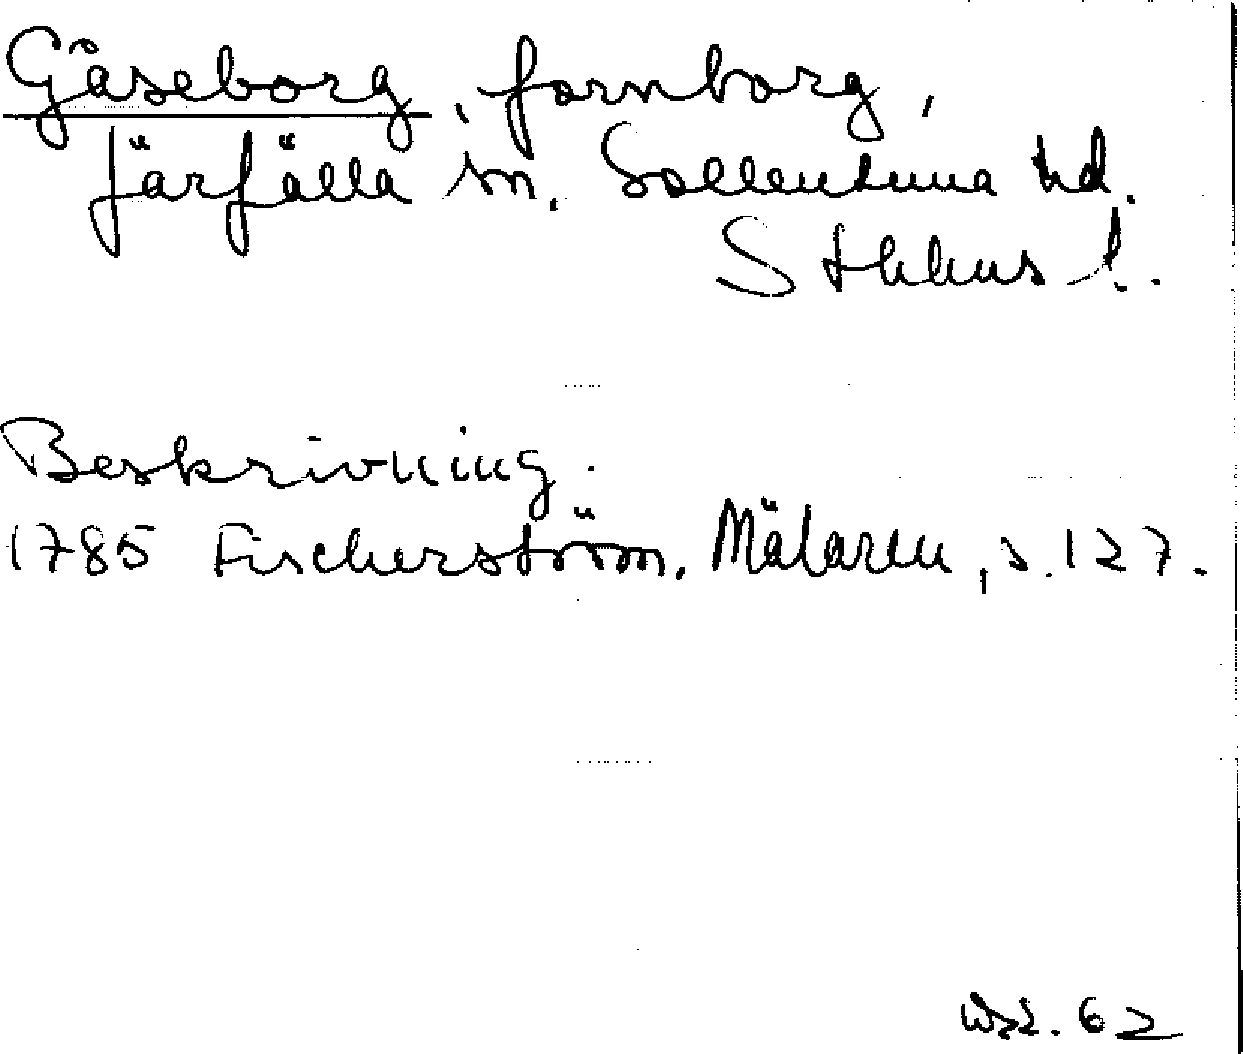 Gåseborg, fornborg,
Järfälla sn. Sollentuna hd.
Sthlms l.
Beskrivning.
1785 Fischerström, Mälaren, s. 127.
62